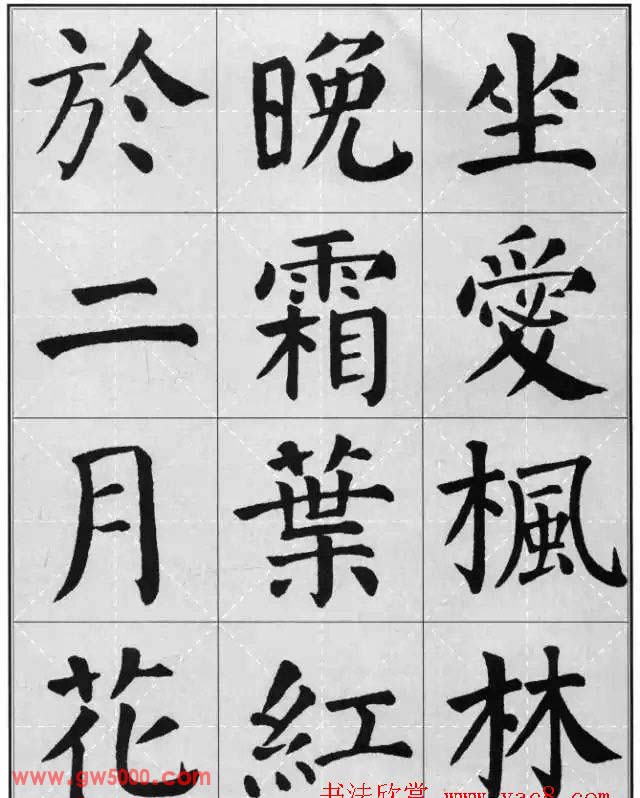 坐愛楓林
晚霜葉紅
於二月花
www.gw5000.com
书法欣赏 www.yac8.com